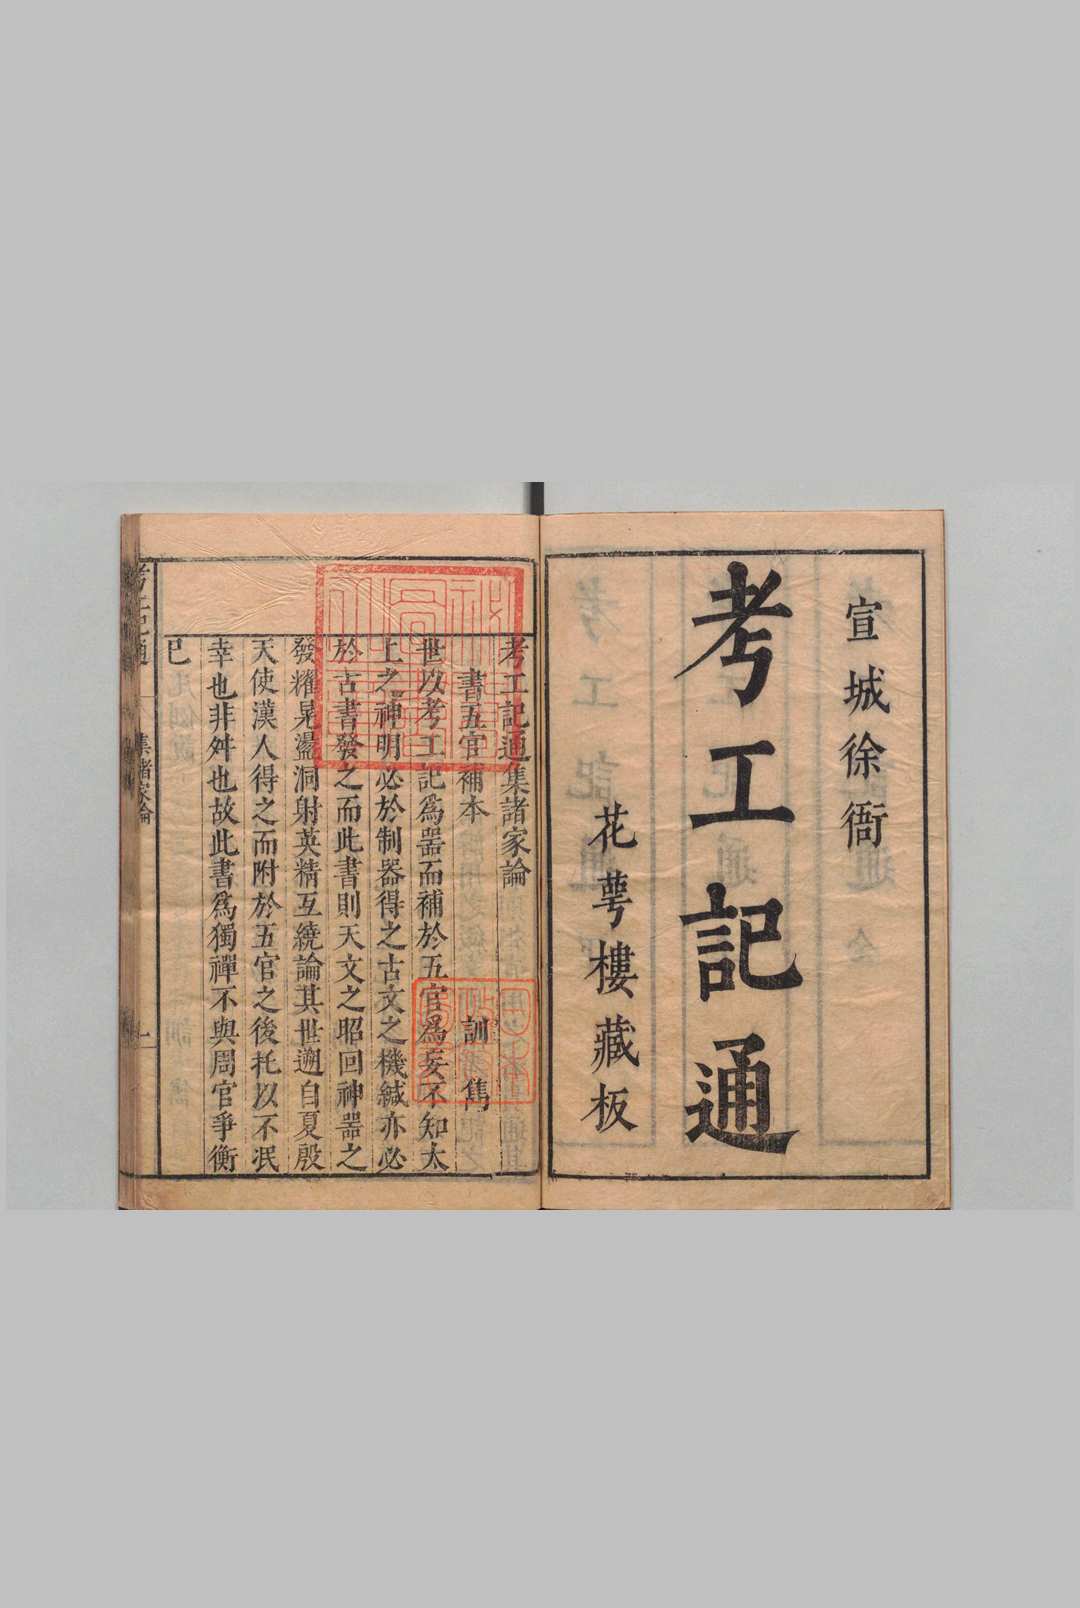 宣城徐衙
考工記通
花萼樓藏板
考工記通集諸家論
書五官補本 訓雋
世以考工記為器而補於五官為妄不知太
上之神明必於制器得之古文之機緘亦必
於古書發之而此書則天文之昭回神器之
發耀晃盪洞射英精互繞論其世遡自夏殷
天使漢人得之而附於五官之後托以不泯
幸也非舛也故此書爲獨禪不與周官爭衡
已
考工記通
集諸家論